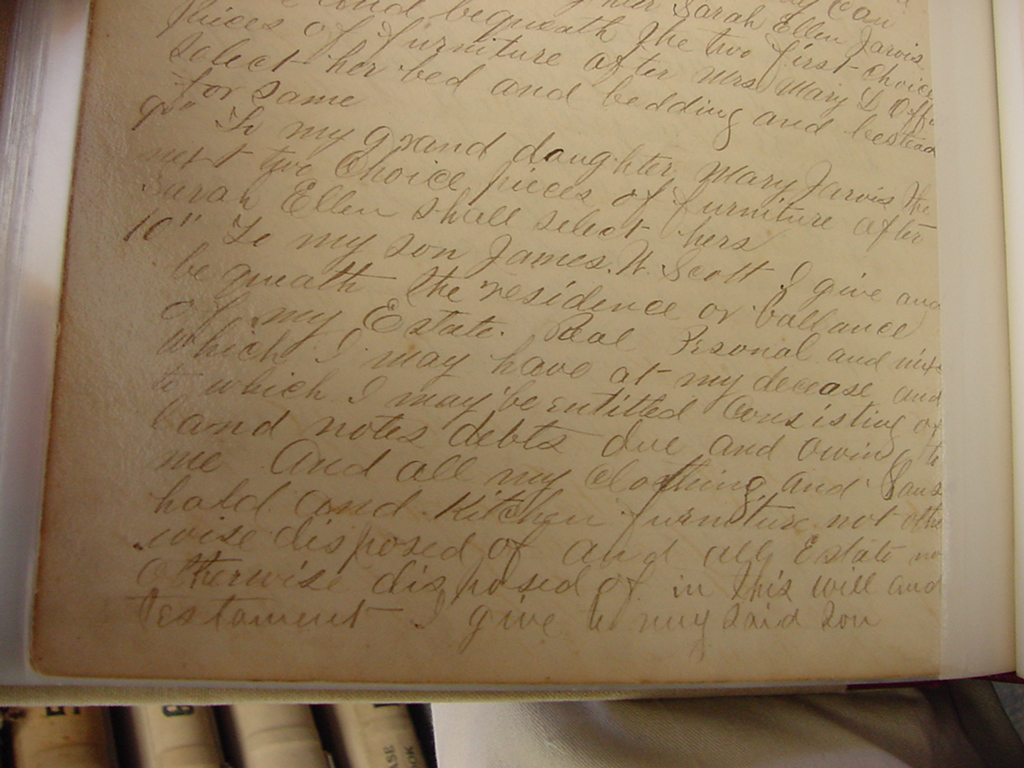 and bequeath the two first choice
Pieces of furniture after Mrs Mary D
select her bed and bedding and bestead
for same
9" To my grand daughter Mary Jarvis the
next two Choice pieces of furniture after
Sarah Ellen shall select hers
10" To my son James. W. Scott I give and
bequeath the residence or ballance
of my Estate. Real Prsonal and mix
which I may have at my decease and
to which I may be entitled Consisting of
land notes debts due and owing to
me And all my clothing and Hous
hold and Kitchen furniture not othe
wise disposed of and all Estate no
otherwise disposed of in this will and
Testament I give to my said Son